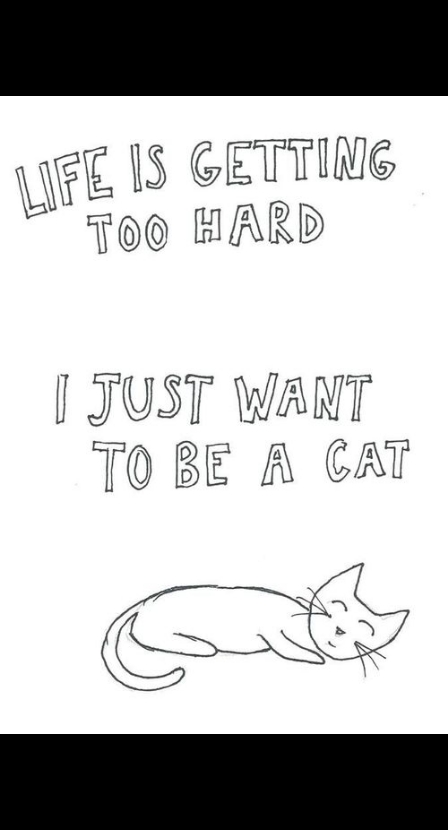 LIFE IS GETTING
TOO HARD
I JUST WANT
TO BE A CAT